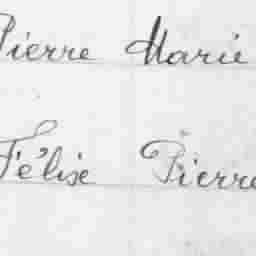 Pierre Marie
Félise Pierre